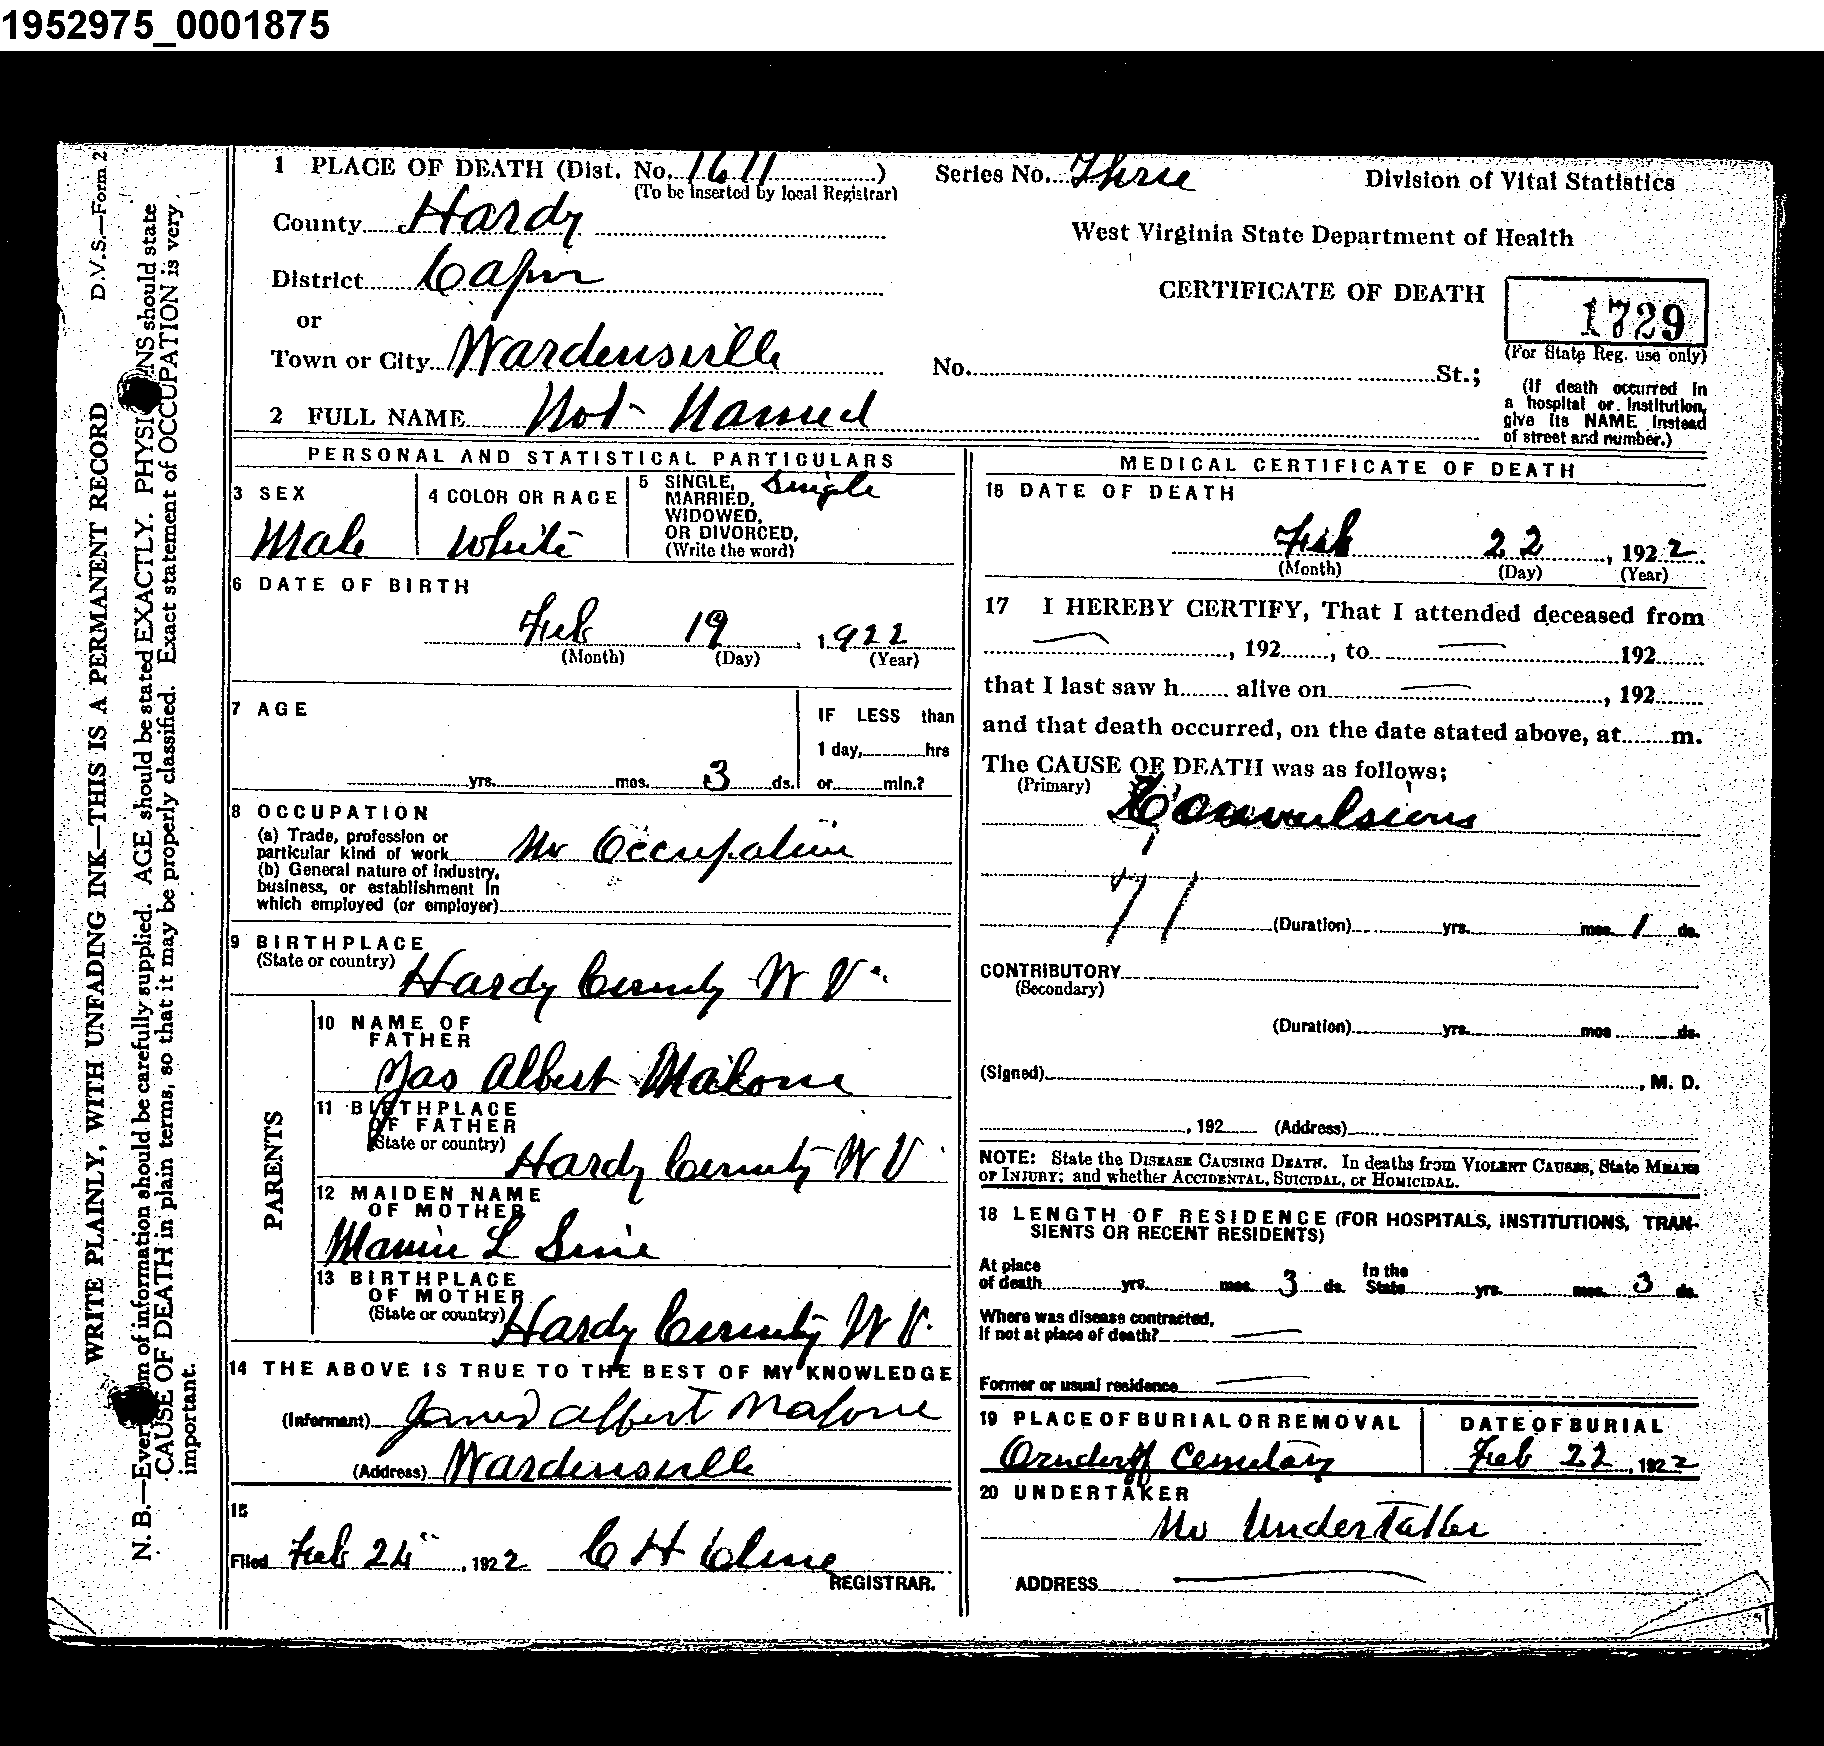 1952975_0001875
D.V.S.—Form 2
WRITE PLAINLY, WITH UNFADING INK—THIS IS A PERMANENT RECORD
N. B.—Every item of information should be carefully supplied. AGE should be stated EXACTLY. PHYSICIANS should state
CAUSE OF DEATH in plain terms, so that it may be properly classified. Exact statement of OCCUPATION is very
important.
1 PLACE OF DEATH (Dist. No. 1671) Series No. Three Division of Vital Statistics
(To be inserted by local Registrar)
County Hardy
West Virginia State Department of Health
District Capon
CERTIFICATE OF DEATH 1729
or
(For State Reg. use only)
Town or City Wardensville No. St.;
(If death occurred in
a hospital or institution,
give its NAME instead
of street and number.)
2 FULL NAME Not Named
PERSONAL AND STATISTICAL PARTICULARS
3 SEX
Male
4 COLOR OR RACE
White
5 SINGLE, Single
MARRIED,
WIDOWED,
OR DIVORCED,
(Write the word)
6 DATE OF BIRTH
Feb 19, 1922
(Month) (Day) (Year)
7 AGE
yrs. mos. 3 ds.
IF LESS than
1 day, hrs
or min.?
8 OCCUPATION
(a) Trade, profession or
particular kind of work No Occupation
(b) General nature of industry,
business, or establishment in
which employed (or employer)
9 BIRTHPLACE
(State or country) Hardy County W V.
PARENTS
10 NAME OF
FATHER
Jas Albert Malone
11 BIRTHPLACE
OF FATHER
(State or country) Hardy County W V
12 MAIDEN NAME
OF MOTHER
L Sine
13 BIRTHPLACE
OF MOTHER
(State or country) Hardy County W V.
14 THE ABOVE IS TRUE TO THE BEST OF MY KNOWLEDGE
(Informant) James Albert Malone
(Address) Wardensville
15
Filed Feb 24, 1922 C H Cline
REGISTRAR.
MEDICAL CERTIFICATE OF DEATH
16 DATE OF DEATH
Feb 22, 1922
(Month) (Day) (Year)
17 I HEREBY CERTIFY, That I attended deceased from
—, 192, to — 192
that I last saw h alive on —, 192
and that death occurred, on the date stated above, at m.
The CAUSE OF DEATH was as follows;
(Primary) Convulsions
71 (Duration) yrs. mos. 1 ds.
CONTRIBUTORY
(Secondary)
(Duration) yrs. mos ds.
(Signed) , M. D.
, 192 (Address)
NOTE: State the DISEASE CAUSING DEATH. In deaths from VIOLENT CAUSES, State MEANS
OF INJURY; and whether ACCIDENTAL, SUICIDAL, or HOMICIDAL.
18 LENGTH OF RESIDENCE (FOR HOSPITALS, INSTITUTIONS, TRAN-
SIENTS OR RECENT RESIDENTS)
At place In the
of death yrs. mos. 3 ds. State yrs. mos. 3 ds.
Where was disease contracted,
If not at place of death? —
Former or usual residence —
19 PLACE OF BURIAL OR REMOVAL
Orndorff Cemetary
DATE OF BURIAL
Feb 22, 1922
20 UNDERTAKER
No Undertaker
ADDRESS —